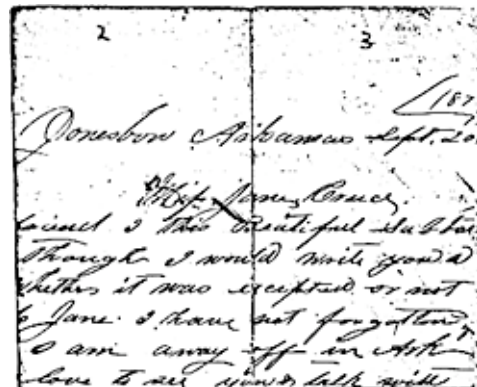 2 3
187
Jonesboro Arkansas Sept. 20
Miss Jane Bruce
friend I this Beautiful Sabba
though I would write you a
whether it was excepted or not
Jane I have not forgotten
am away off in Ark
love to see you & talk with